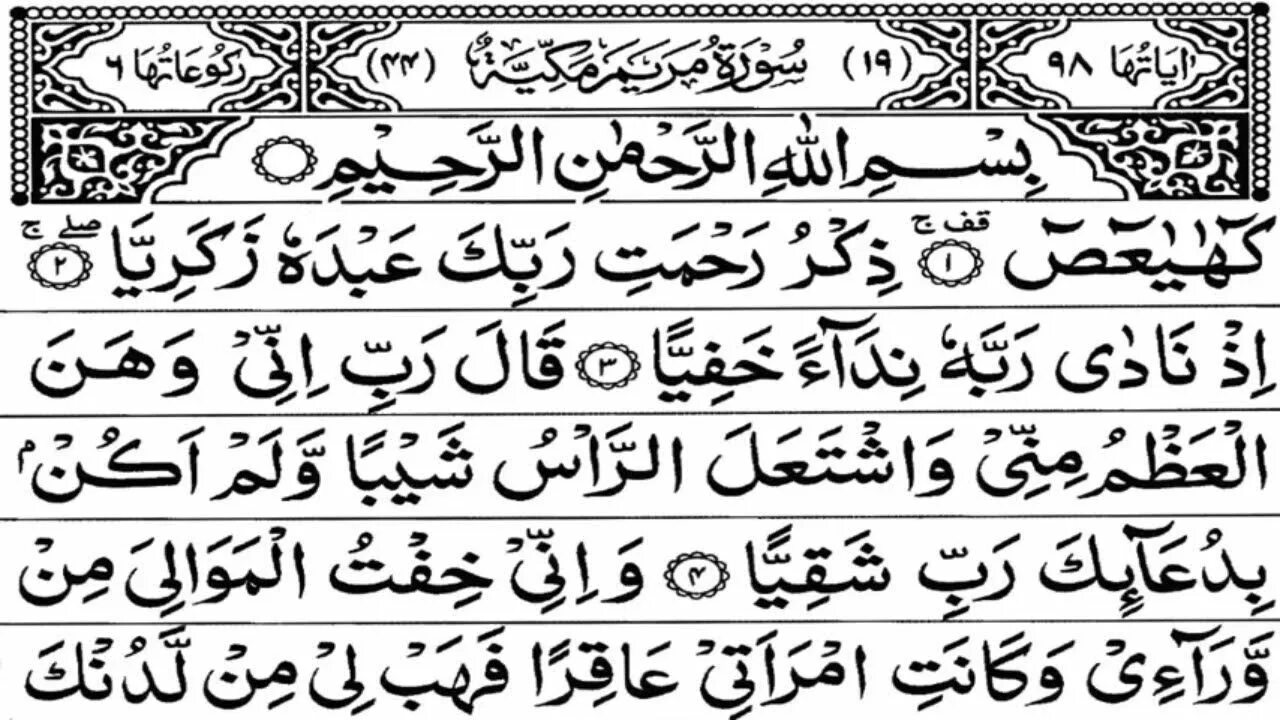 اٰيَاتُهَا ٩٨ (١٩) سُوْرَةُ مَرْيَمَ مَكِّيَّةٌ (٤٤) رُكُوْعَاتُهَا ٦
بِسْمِ اللّٰهِ الرَّحْمٰنِ الرَّحِيْمِ ۝
كٓهٰيٰعٓصٓ ۝١ قف ج ذِكْرُ رَحْمَتِ رَبِّكَ عَبْدَهٗ زَكَرِيَّا ۝٢ صلے ج
اِذْ نَادٰى رَبَّهٗ نِدَآءً خَفِيًّا ۝٣ قَالَ رَبِّ اِنِّىْ وَهَنَ
الْعَظْمُ مِنِّىْ وَاشْتَعَلَ الرَّاْسُ شَيْبًا وَّلَمْ اَكُنْۢ
بِدُعَآئِكَ رَبِّ شَقِيًّا ۝٤ وَاِنِّىْ خِفْتُ الْمَوَالِىَ مِنْ
وَّرَآءِىْ وَكَانَتِ امْرَاَتِىْ عَاقِرًا فَهَبْ لِىْ مِنْ لَّدُنْكَ